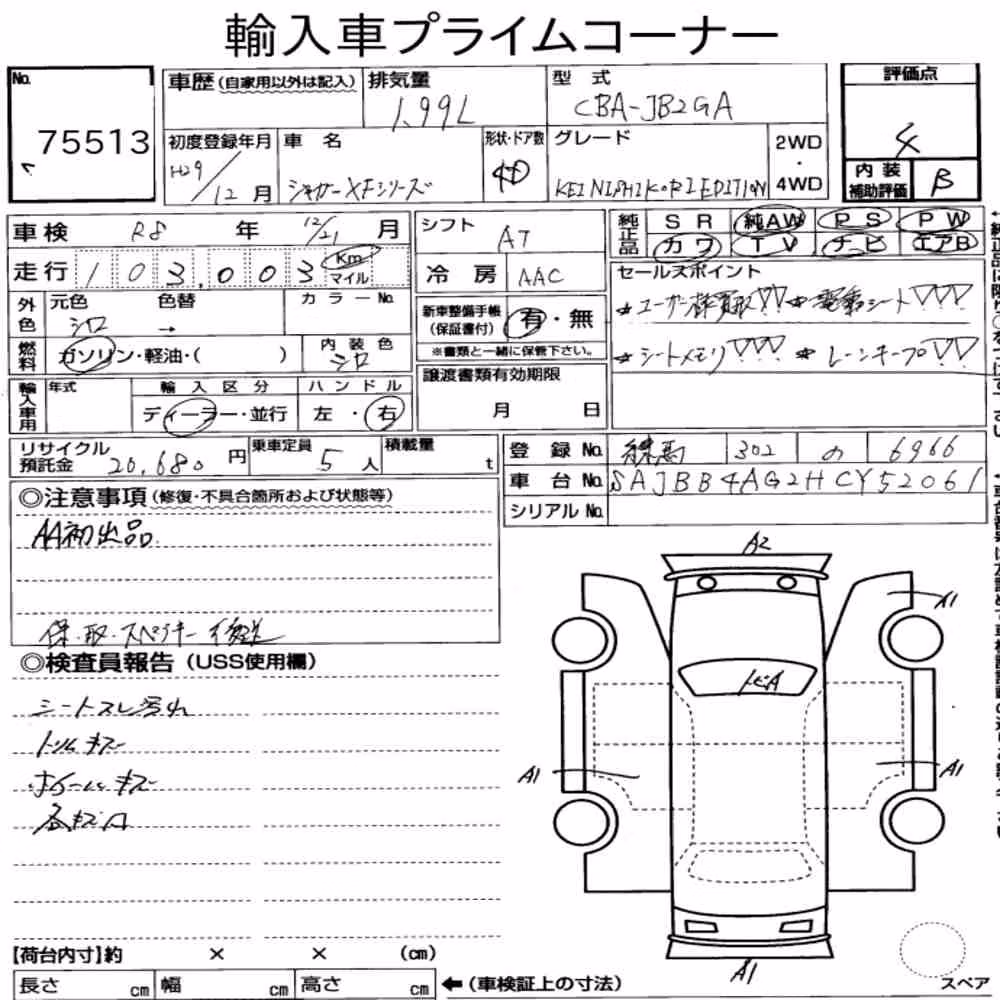 輸入車プライムコーナー
No. 75513
車歴(自家用以外は記入) 排気量 1.99L 型式 CBA-JB2GA 評価点 4
初度登録年月 H29/12月 車名 ジャガーXFシリーズ 形状・ドア数 4D グレード KEI NISHIKORI EDITION 2WD・4WD 内装補助評価 B
車検 R8年 12/21月 シフト AT 純正品 SR 純AW PS PW
走行 103,003 Km マイル 冷房 AAC カワ TV ナビ エアB
外色 元色 シロ 色替 → カラーNo. 新車整備手帳(保証書付) 有・無 セールスポイント
※書類と一緒に保管下さい。 ☆ユーザー様買取!! ☆電動シート
燃料 ガソリン・軽油・( ) 内装色 シロ ☆シートメモリ ☆レーンキープ
輸入車用 年式 輸入区分 ディーラー・並行 ハンドル 左・右 譲渡書類有効期限 月 日
リサイクル預託金 20,680円 乗車定員 5人 積載量 t 登録No. 練馬 302 の 6966
車台No. SAJBB4AG2HCY52061
シリアルNo.
◎注意事項(修復・不具合箇所および状態等)
AA初出品
保・取・スペアキー後送
◎検査員報告(USS使用欄)
シートスレ汚れ
トリムキズ
ホイールキズ
各キズ凹
A2
A1
トビA
A1
A1
A1
【荷台内寸】約 × × (cm)
長さ cm 幅 cm 高さ cm ←(車検証上の寸法) スペア